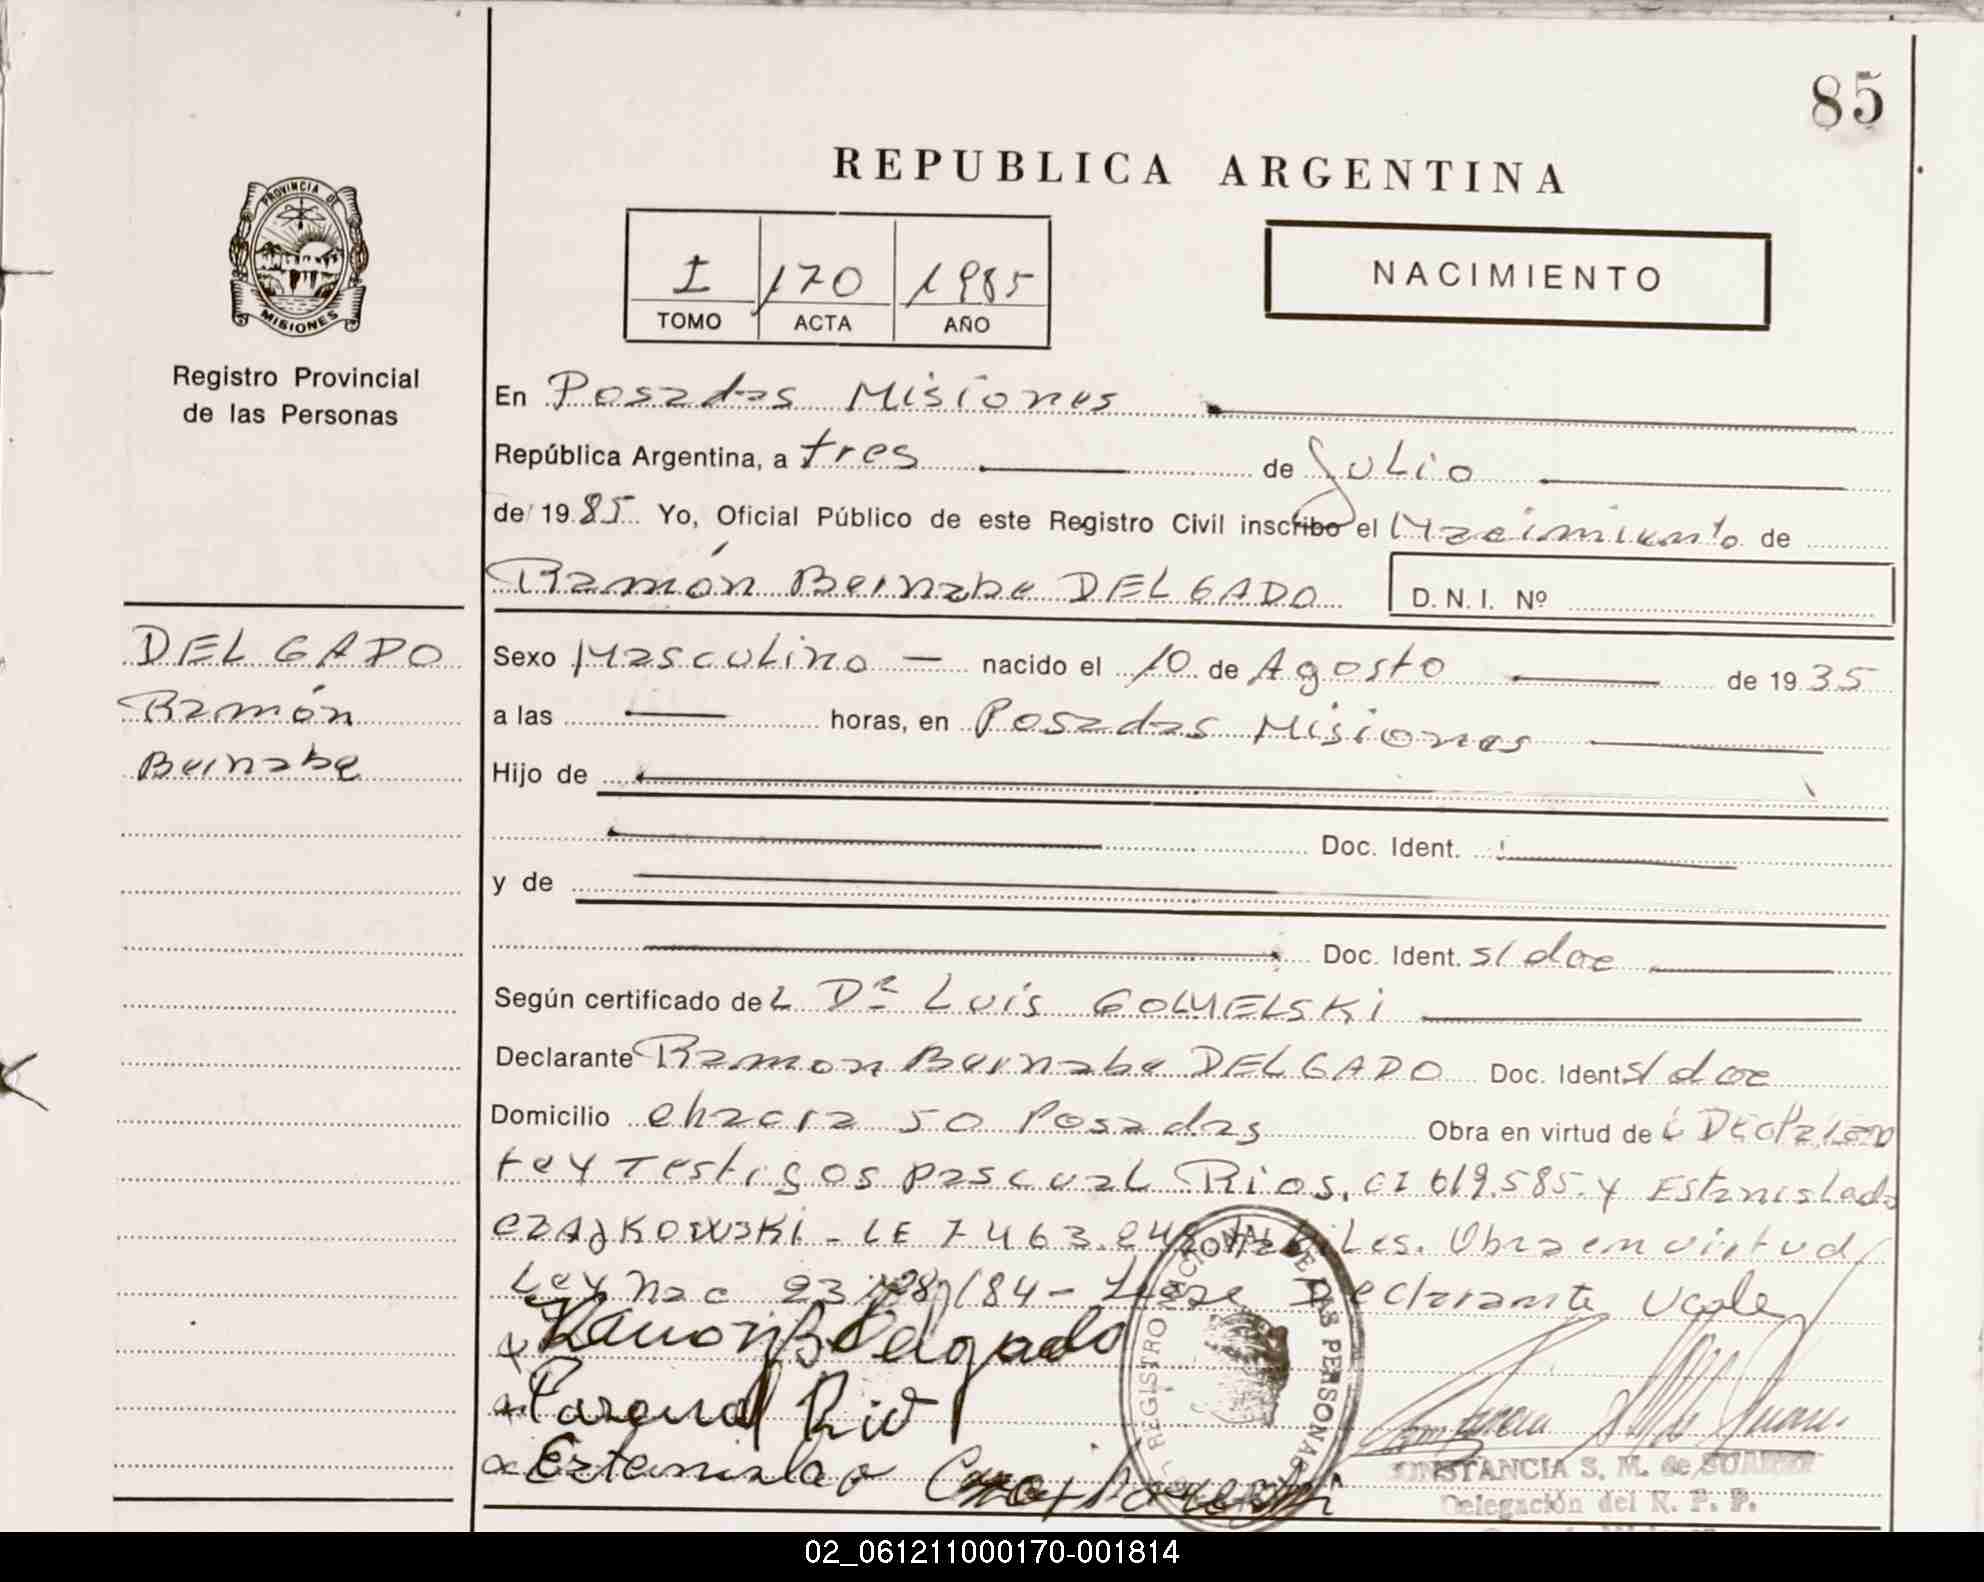 85
REPUBLICA ARGENTINA
PROVINCIA DE
MISIONES
Registro Provincial
de las Personas
I 170 1985
TOMO ACTA AÑO
NACIMIENTO
En Posadas Misiones
República Argentina, a tres de Julio
de 19 85 Yo, Oficial Público de este Registro Civil inscribo el Nacimiento de
Ramón Bernabe DELGADO D. N. I. Nº
DELGADO
Ramón
Bernabe
Sexo Masculino — nacido el 10 de Agosto de 19 35
a las — horas, en Posadas Misiones
Hijo de
Doc. Ident.
y de
Doc. Ident. s/doc
Según certificado del Dr Luis GOLUELSKI
Declarante Ramon Bernabe DELGADO Doc. Ident s/doc
Domicilio chacra 50 Posadas Obra en virtud de
Testigos Pascual Rios, CI 619.585. y Estanislado
CZAJKOWSKI - LE 7463. habiles. Obra en virtud
Ley Nac 23 /84- Lease Declarante Vale
Ramon B Delgado
Pascual Rio
Estanislao
REGISTRO NACIONAL DE LAS PERSONAS
CONSTANCIA S. M. de SUAREZ
Delegación del R. P. P.
02_061211000170-001814